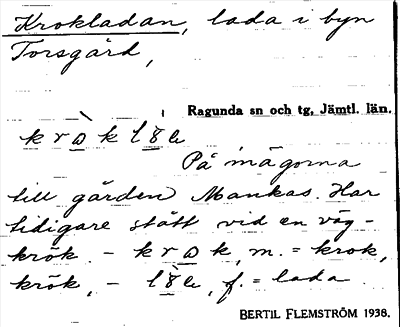 Krokladan, lada i byn
Torsgård,
Ragunda sn och tg, Jämtl. län.
På mägorna
till gården Mankas. Har
tidigare stått vid en väg-
krök. – krok, m. = krok,
krök, – f. = lada
BERTIL FLEMSTRÖM 1938.